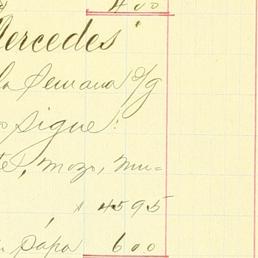 4 00
Mercedes"
la Semana o/g
sigue:
, Mozo, Mu=
, $ 4595
papa 600